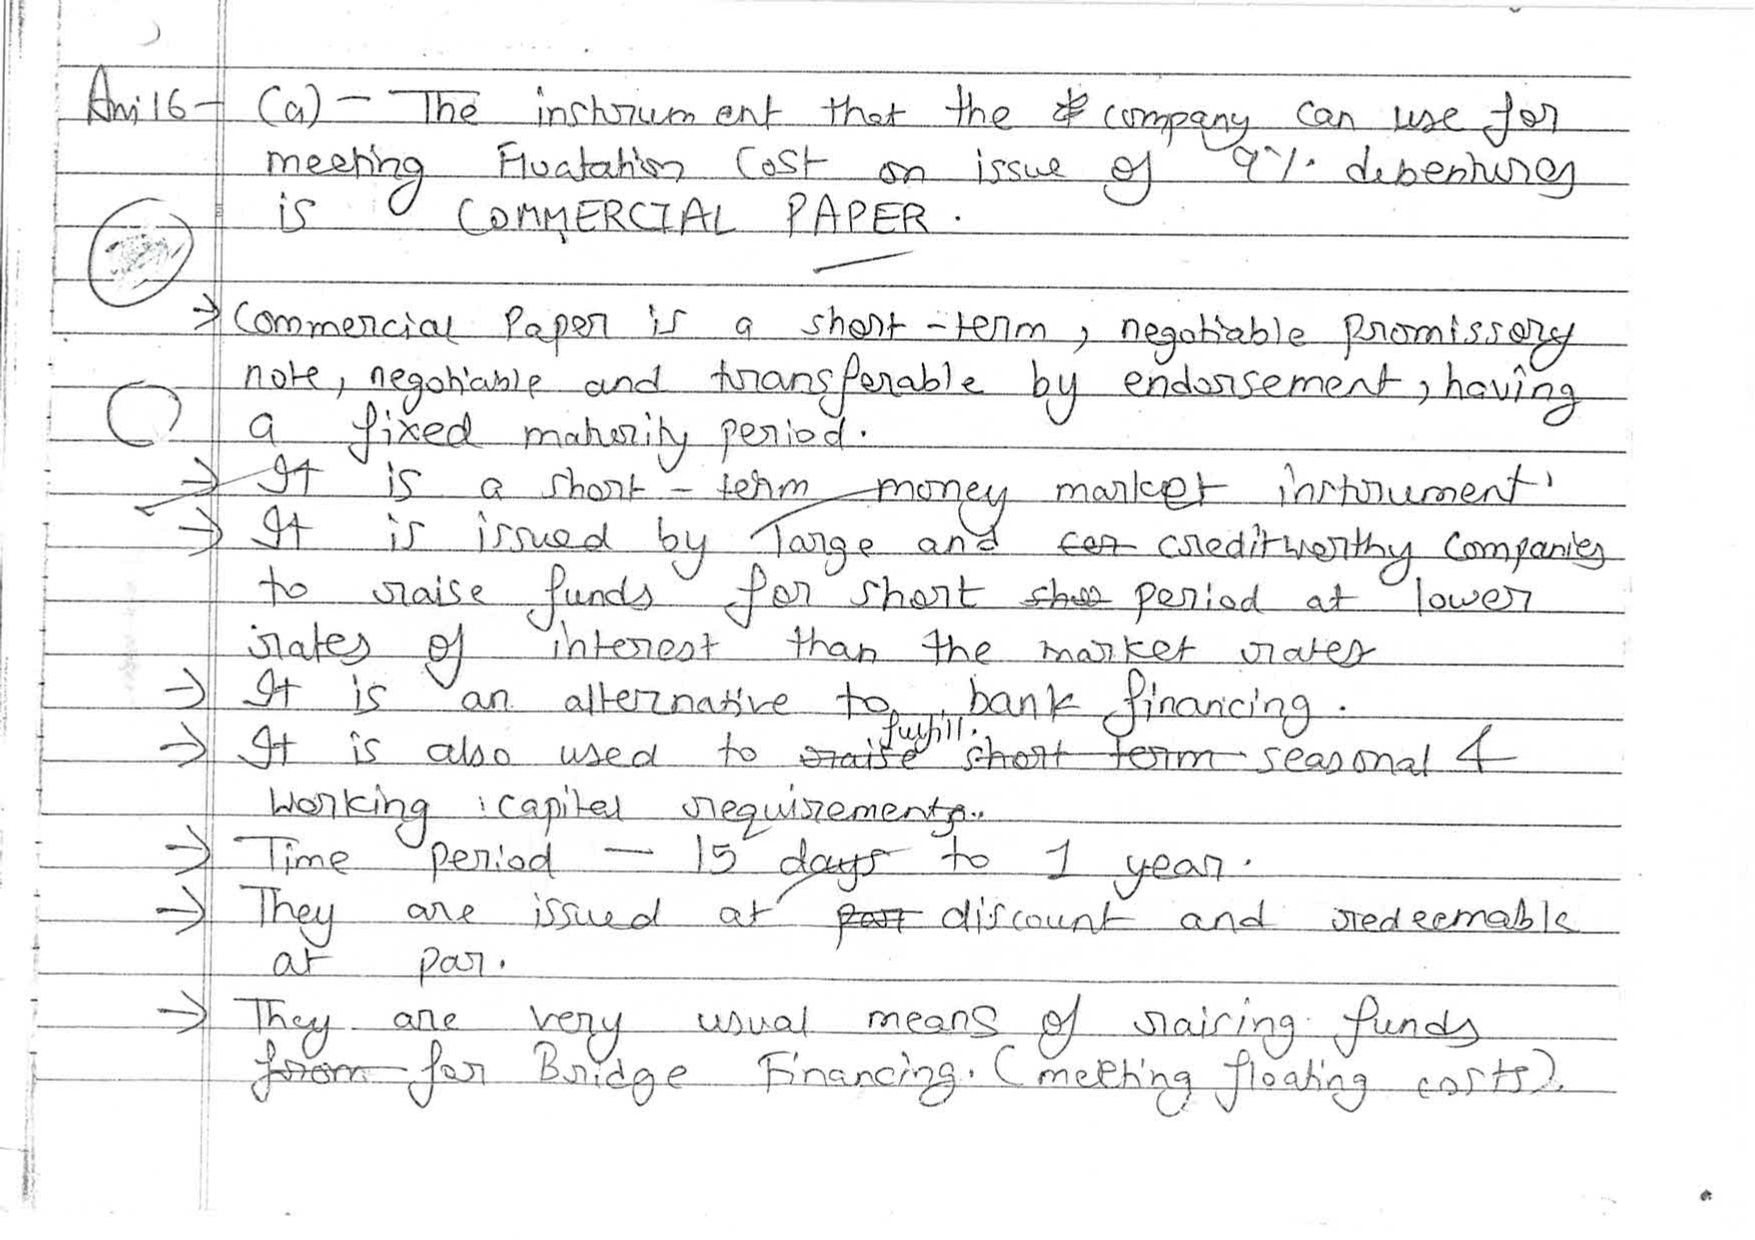 Ans 16 - (a) - The instrument that the company can use for
meeting Fluatation Cost on issue of 9% debentures
is COMMERCIAL PAPER.
→ Commercial Paper is a short-term, negotiable promissory
note, negotiable and transferable by endorsement, having
a fixed maturity period.
→ It is a short-term money market instrument.
→ It is issued by large and creditworthy Companies
to raise funds for short period at lower
rates of interest than the market rates
→ It is an alternative to bank financing.
→ It is also used to fulfill seasonal &
working capital requirements.
→ Time period - 15 days to 1 year.
→ They are issued at discount and redeemable
at par.
→ They are very usual means of raising funds
for Bridge Financing. (meeting floating costs).